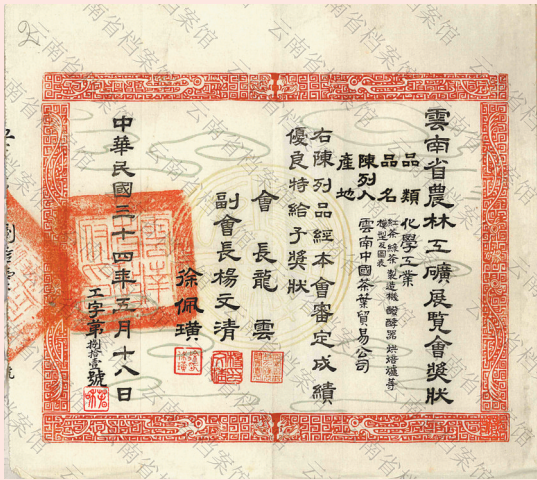 雲南省農林工礦展覽會獎狀
品類 化學工業
品名 紅茶綠茶製造機醱酵器烘焙爐等模型及圖表
陳列人 雲南中國茶葉貿易公司
產地
右陳列品經本會審定成績
優良特給予獎狀
會長龍雲
副會長楊文清
徐佩璜
中華民國三十四年五月十八日
工字第捌拾壹號
云南省档案馆